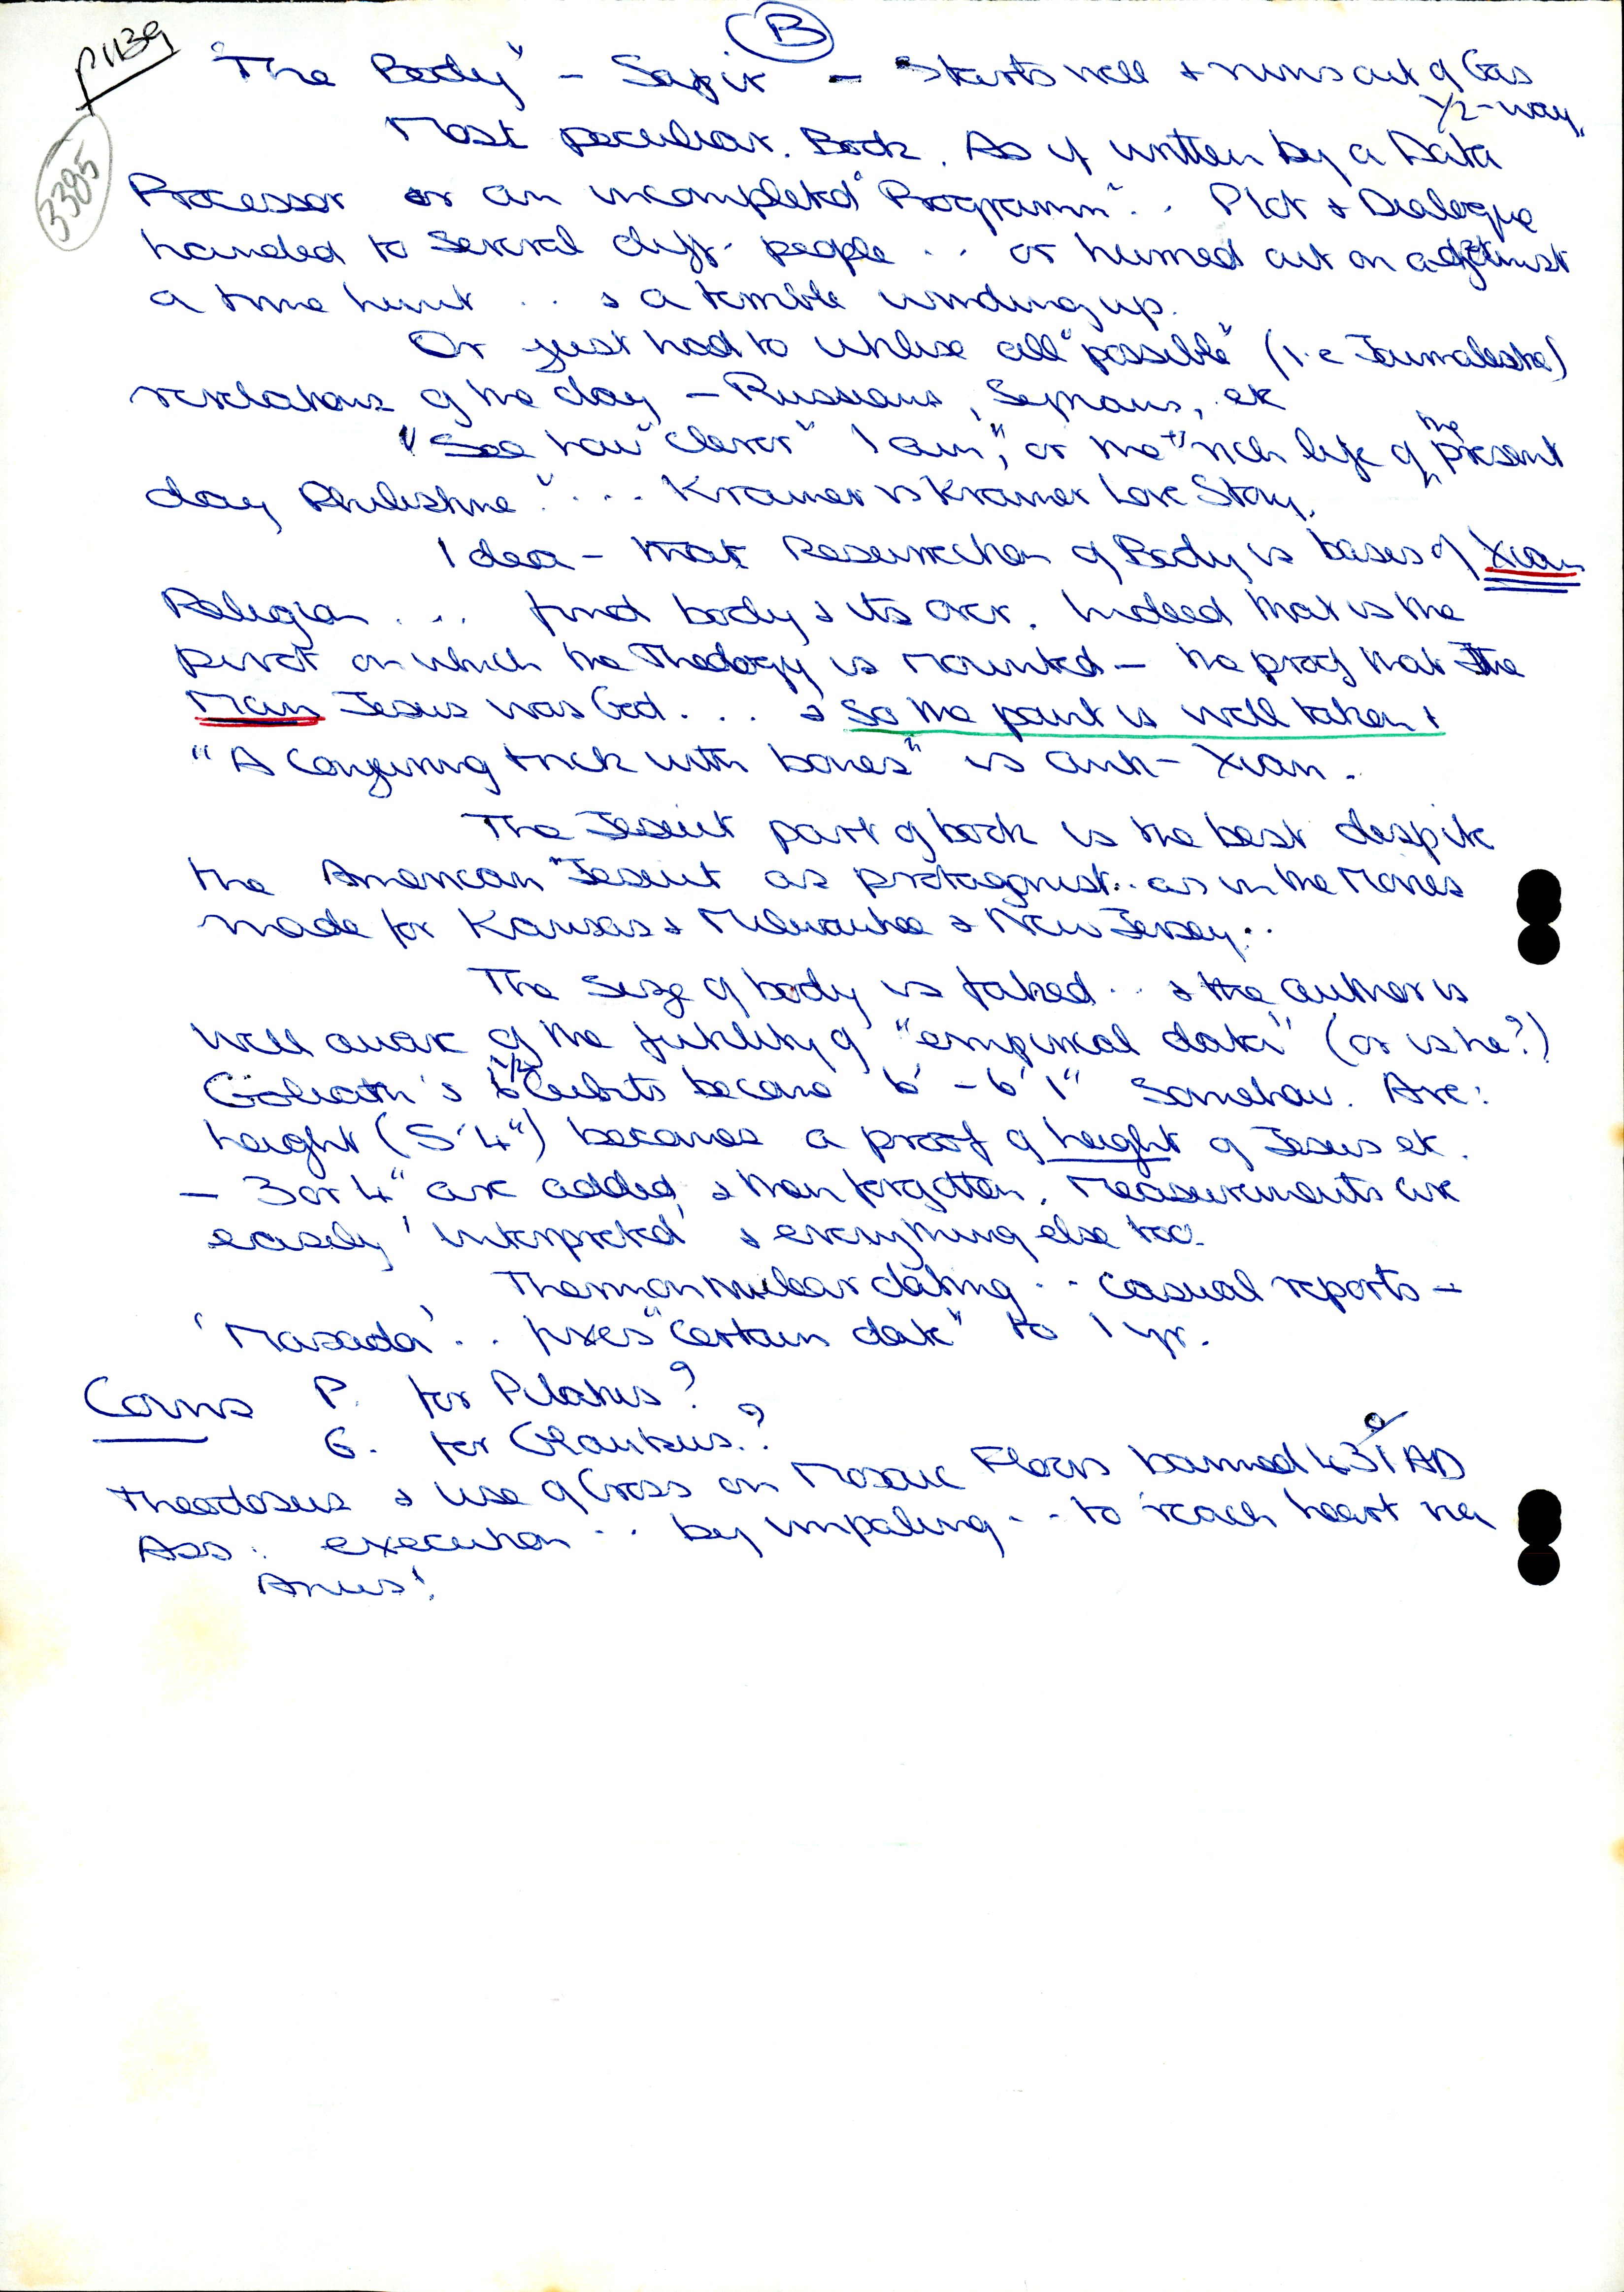 B
P1139
3385
"The Body" - Sapir - Starts well & runs out of Gas
1/2-way.
Most peculiar. Book. As if written by a Data
Processor or an incompleted "Programm".. Plot & Dialogue
handed to several diff. people .. or hurried out on against
a time limit .. & a terrible winding up.
Or just had to utilise all "possible" (i.e Journalistic)
revelations of the day - Russians, Semans, etc
"See how "clever" I am", or the "rich life of the present
day Philistine" ... Kramer vs Kramer Love Story.
Idea - that Resurrection of Body is basis of Xian
Religion ... find body & its over. Indeed that is the
pivot on which the Theology is mounted - the proof that the
Man Jesus was God ... & so the point is well taken &
"A conjuring trick with bones" is anti-Xian.
The Jesuit part of book is the best despite
the American "Jesuit as protagonist.. as in the Movies
made for Kansas & Milwaukee & New Jersey..
The size of body is faked .. & the author is
well aware of the futility of "empirical data" (or is he?)
Goliath's 6 1/2 Cubits became 6' - 6'1" Somehow. Ave:
height (5'4") becomes a proof of height of Jesus etc.
- 3 or 4" are added, & then forgotten. Measurements are
easily 'interpreted' & everything else too.
Thermonnuclear dating .. casual reports -
'Masada'.. fixes "certain date" to 1 yr.
Coins P. for Pilatus?
G. for Glaukus.?
Theodoseus & use of Cross on Mosaic Floors banned 431 AD
Ass: execution .. by impaling .. to reach heart via
Anus!